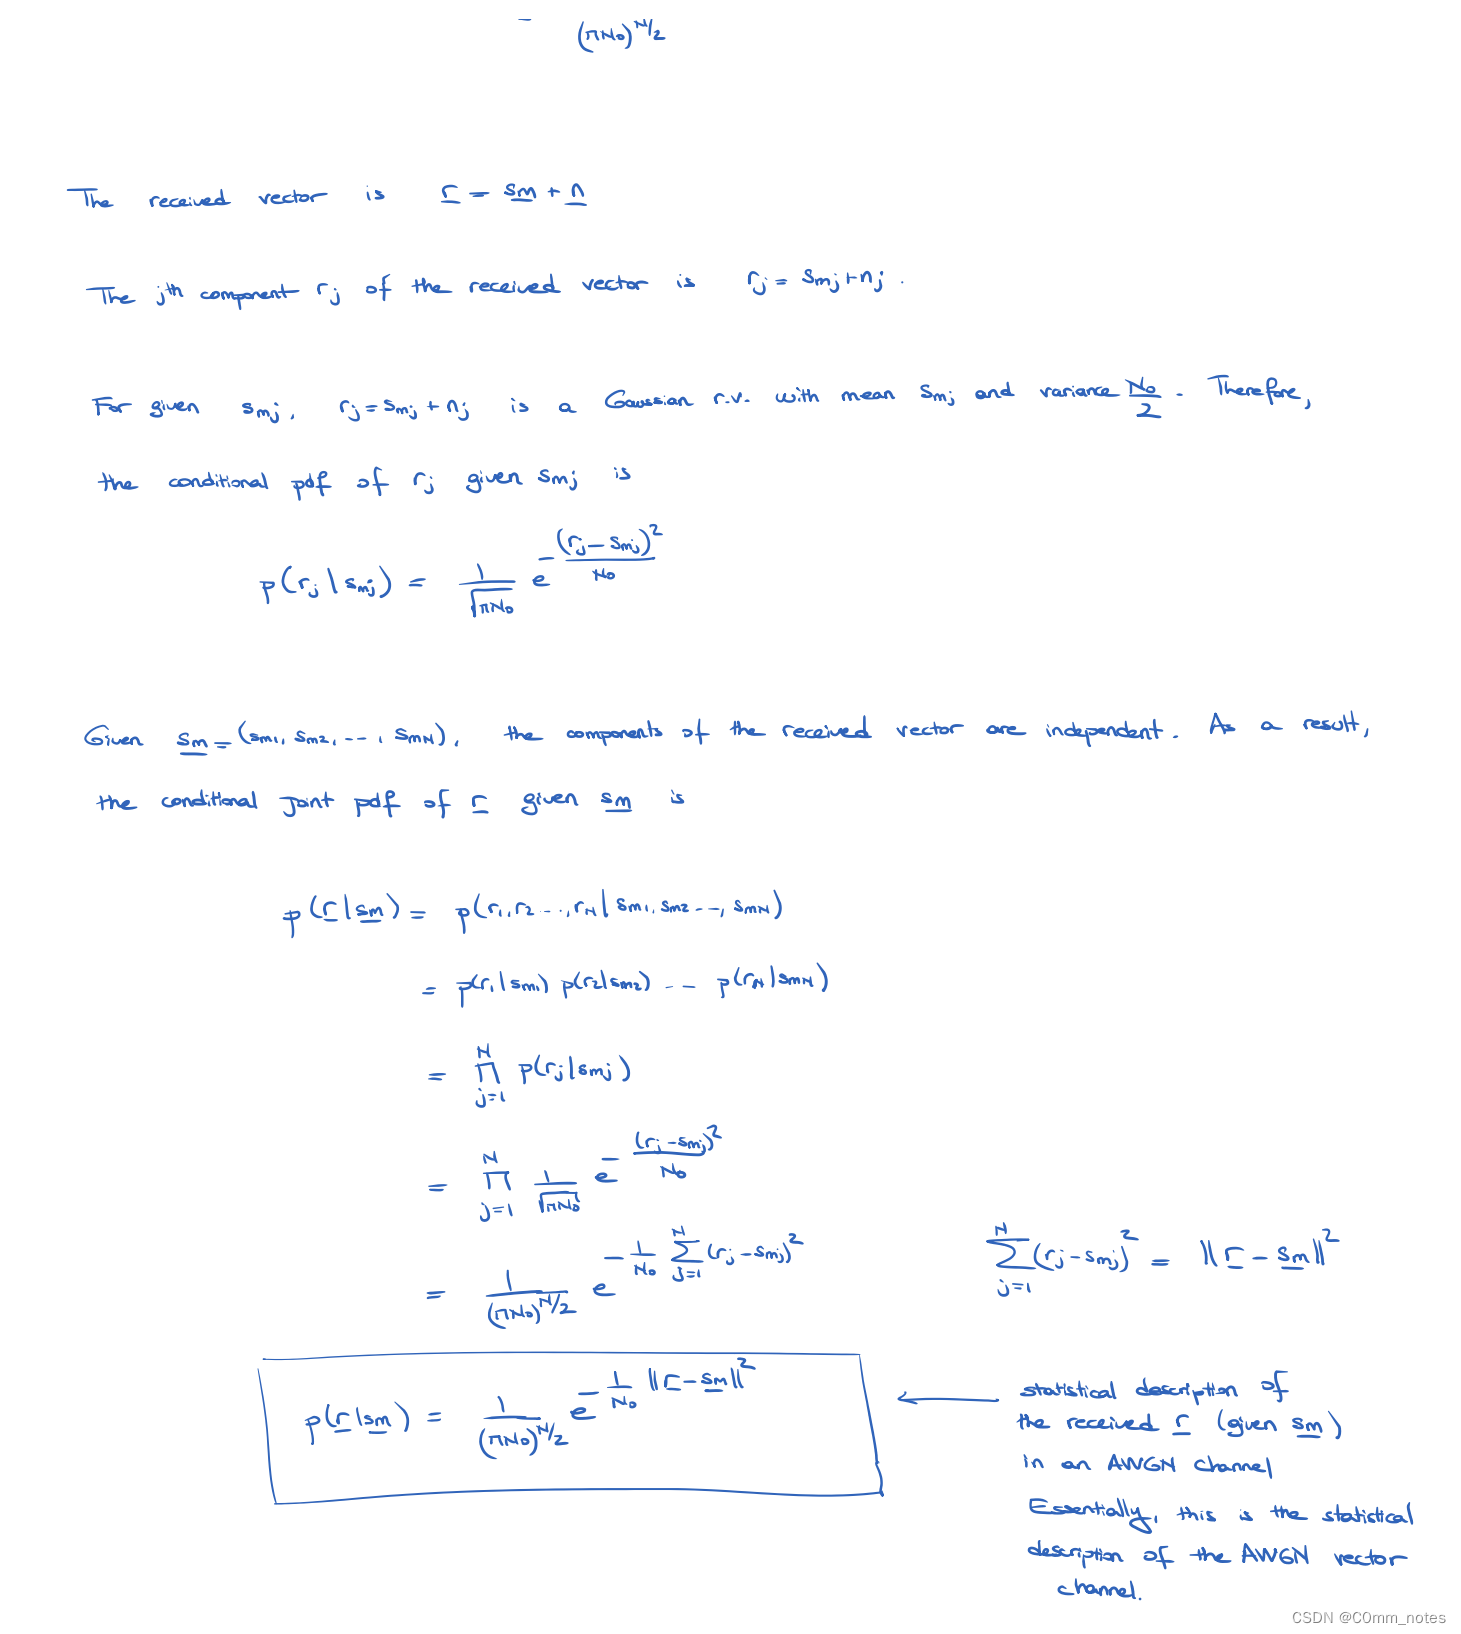 (πN₀)^{N/2}
The received vector is r = sm + n
The jth component rj of the received vector is rj = smj + nj .
For given smj, rj = smj + nj is a Gaussian r.v. with mean smj and variance N₀/2 . Therefore,
the conditional pdf of rj given smj is
p(rj | smj) = 1/√(πN₀) e^{-(rj - smj)²/N₀}
Given sm = (sm1, sm2, --, smN), the components of the received vector are independent. As a result,
the conditional joint pdf of r given sm is
p(r | sm) = p(r1, r2 ..., rN | sm1, sm2 --, smN)
= p(r1 | sm1) p(r2 | sm2) -- p(rN | smN)
= ∏_{j=1}^{N} p(rj | smj)
= ∏_{j=1}^{N} 1/√(πN₀) e^{-(rj - smj)²/N₀}
= 1/(πN₀)^{N/2} e^{-1/N₀ ∑_{j=1}^{N} (rj - smj)²}
∑_{j=1}^{N} (rj - smj)² = ||r - sm||²
p(r | sm) = 1/(πN₀)^{N/2} e^{-1/N₀ ||r - sm||²}
statistical description of
the received r (given sm)
in an AWGN channel
Essentially, this is the statistical
description of the AWGN vector
channel.
CSDN @C0mm_notes